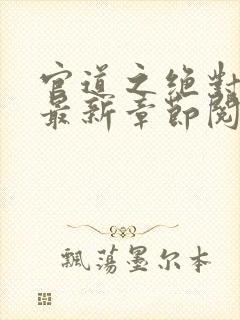 官道之绝對
最新章節閱
飄荡墨尔本